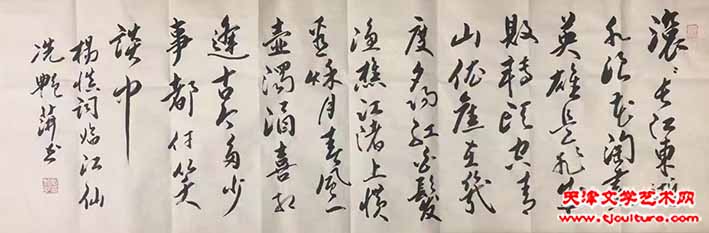 滚〻长江東逝
水浪花淘尽
英雄是非成
敗转头空青
山依旧在幾
度夕阳红白髮
渔樵江渚上惯
看秋月春風一
壶濁酒喜相
逢古今多少
事都付笑
谈中
楊慎词临江仙
书
天津文学艺术网
www.tjculture.com